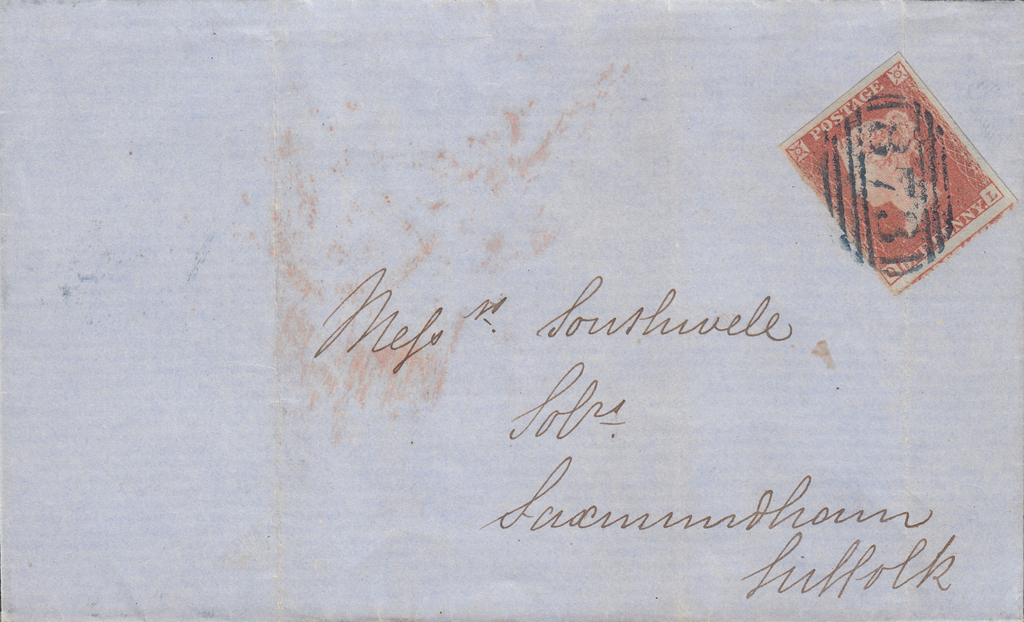 POSTAGE
873
ONE PENNY L
Messrs. Southwele
Solrs.
Saxmundham
Suffolk